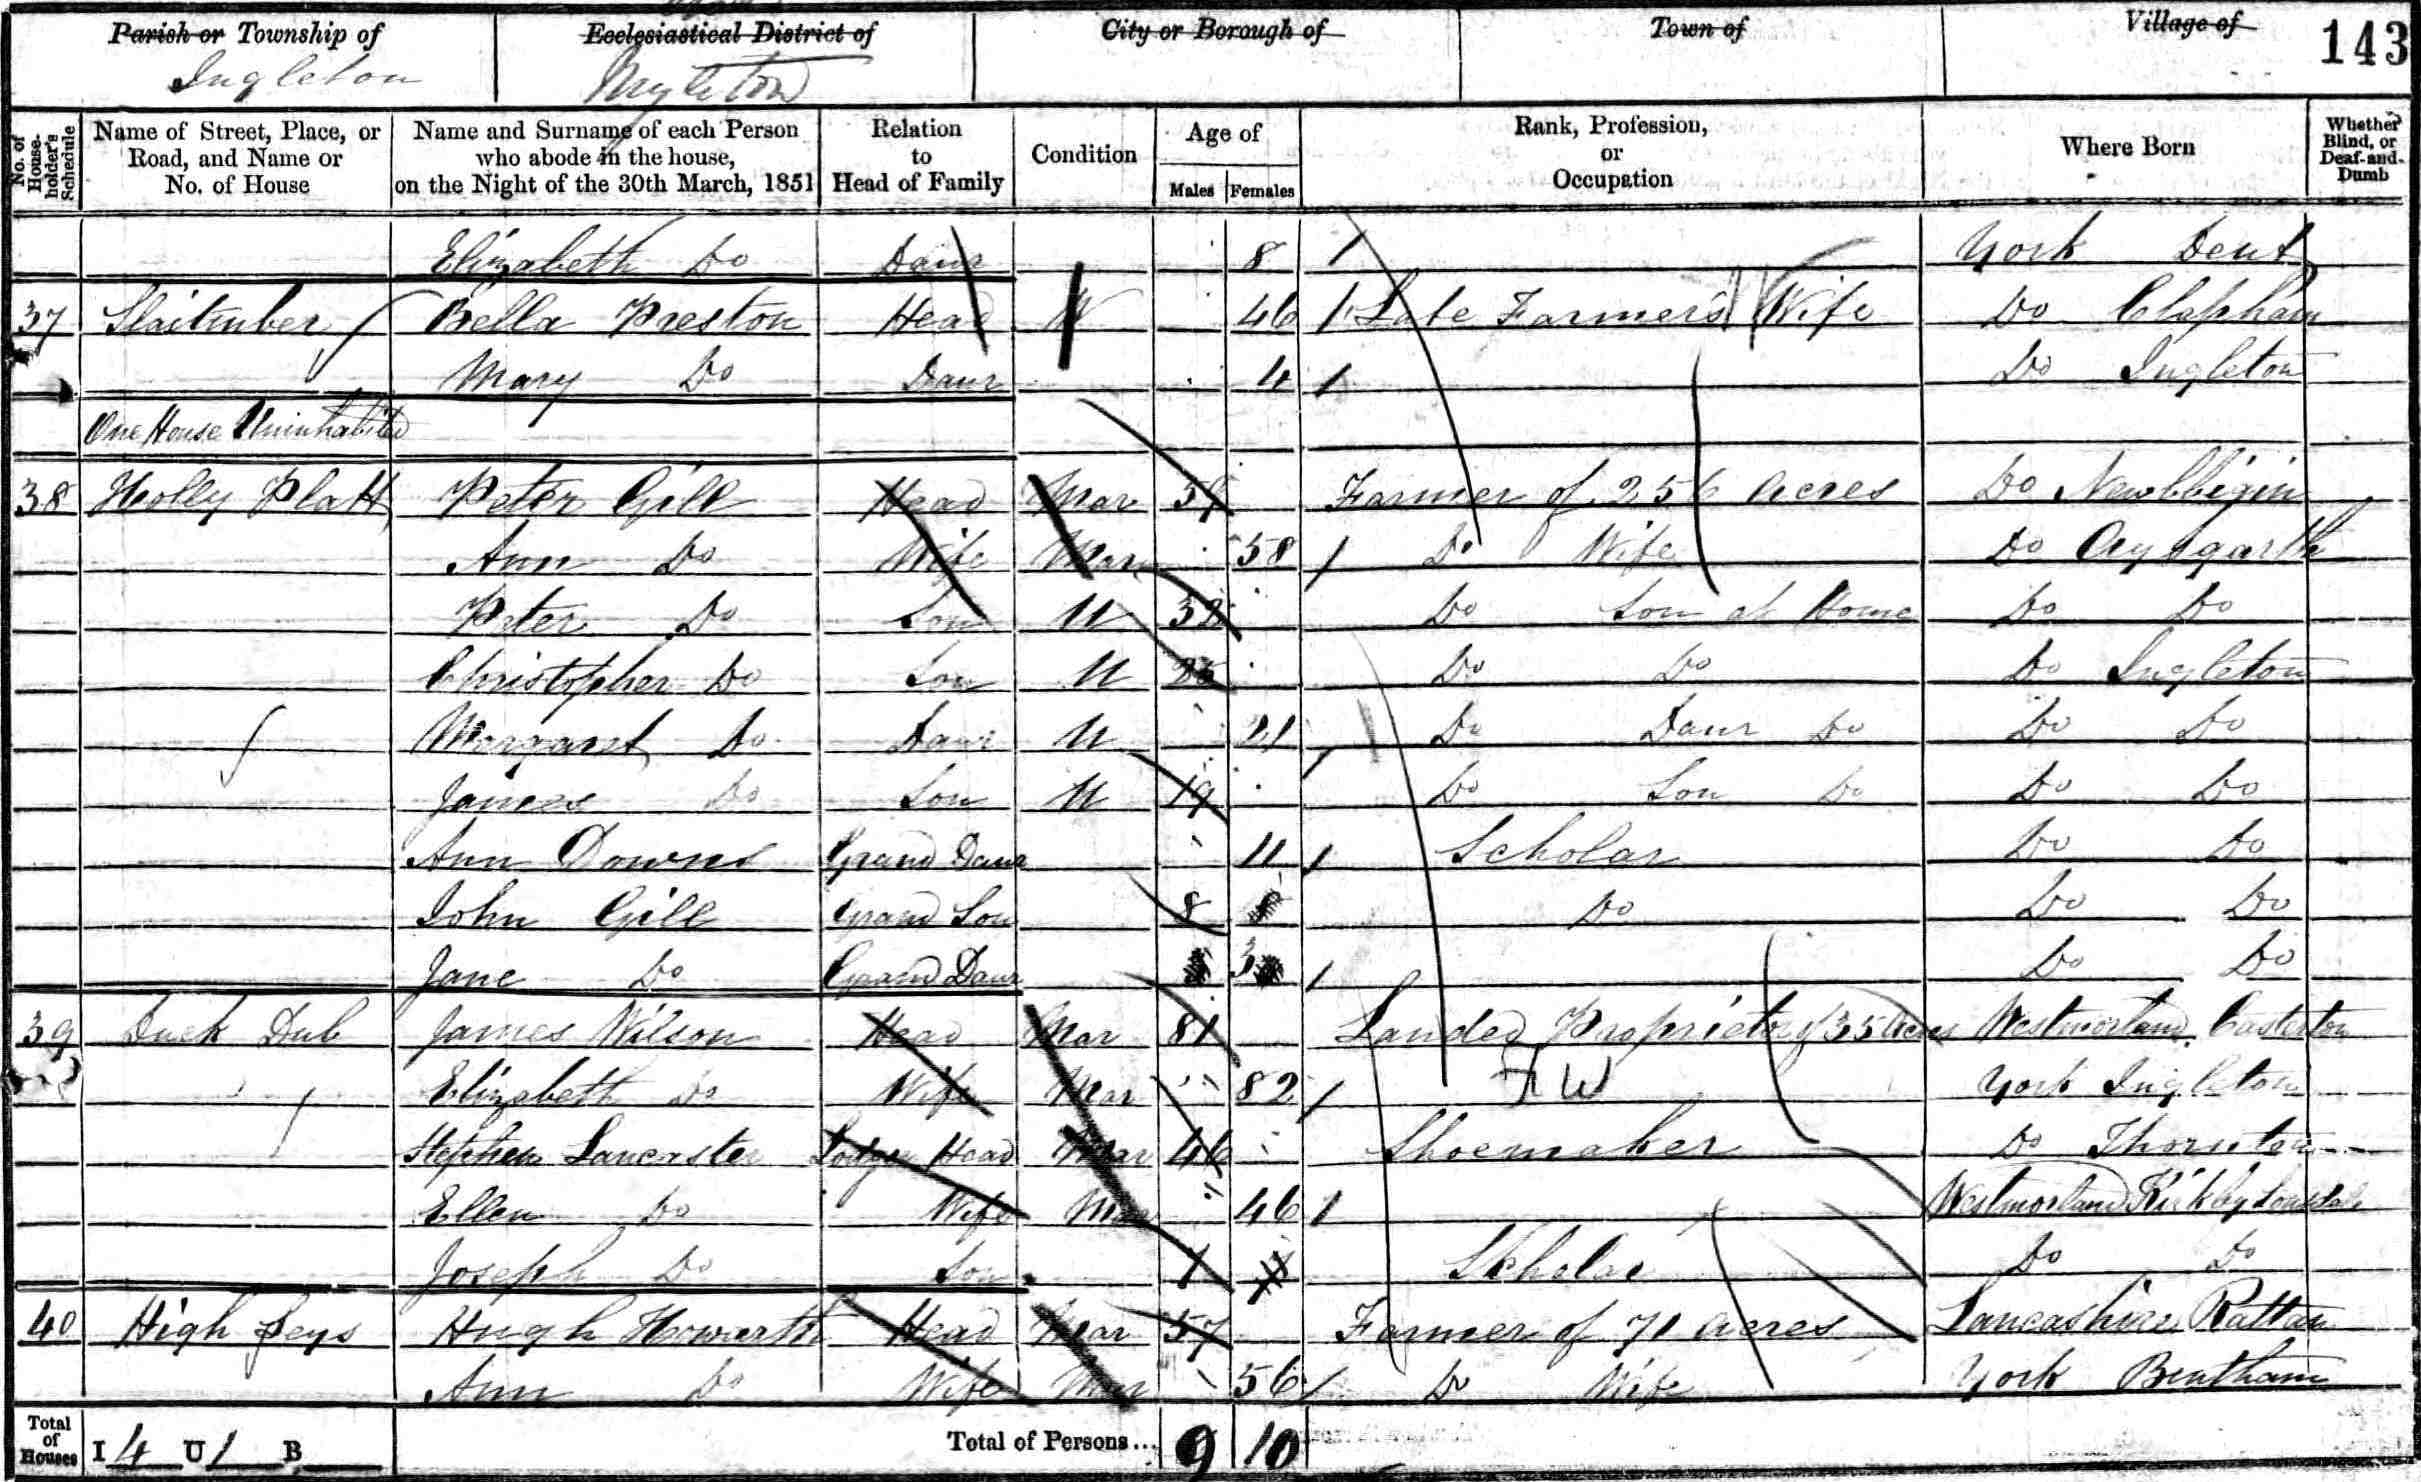 Parish or Township of Ecclesiastical District of City or Borough of Town of Village of 143
Ingleton Ingleton
No. of House-holder's Schedule Name of Street, Place, or Road, and Name or No. of House Name and Surname of each Person who abode in the house, on the Night of the 30th March, 1851 Relation to Head of Family Condition Age of Males Females Rank, Profession, or Occupation Where Born Whether Blind, or Deaf-and-Dumb
Elizabeth Do Daur 8 York Dent
37 Slaitenber Bella Preston Head W 46 Late Farmer's Wife Do Clapham
Mary Do Daur 4 Do Ingleton
One House Uninhabited
38 Holly Platt Peter Gill Head Mar 59 Farmer of 256 Acres Do Newbbigin
Ann Do Wife Mar 58 Do Wife Do Aysgarth
Peter Do Son U 32 Do Son at Home Do Do
Christopher Do Son U 25 Do Do Do Ingleton
Margaret Do Daur U 21 Do Daur Do Do Do
James Do Son U 19 Do Son Do Do Do
Ann Downs Grand Daur 11 Scholar Do Do
John Gill Grand Son 8 Do Do Do
Jane Do Grand Daur 3 Do Do
39 Duck Dub James Wilson Head Mar 81 Landed Proprietor of 35 Acres Westmorland Casterton
Elizabeth Do Wife Mar 82 F W York Ingleton
Stephen Lancaster Lodger Head Mar 46 Shoemaker Do Thornton
Ellen Do Wife Mar 46 Westmorland Kirkby Lonsdale
Joseph Do Son 7 Scholar Do Do
40 High Leys Hugh Howarth Head Mar 57 Farmer of 71 Acres Lancashire Rattan
Ann Do Wife Mar 56 Do Wife York Bentham
Total of Houses I 4 U 1 B Total of Persons... 9 10